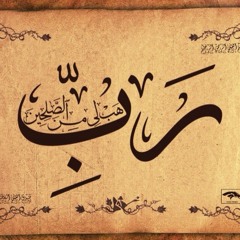 رَبِّ
هَبْ لِي مِنَ الصَّلِحِينَ